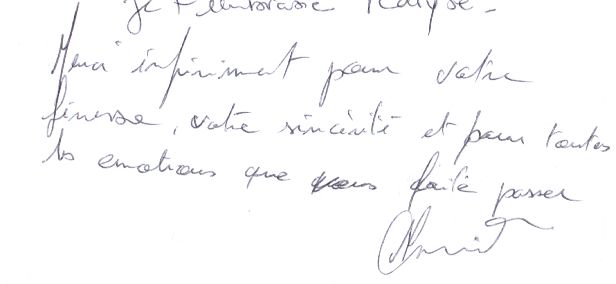 Je t'embrasse
Merci infiniment pour votre
finesse, votre sincérité et pour toutes
les emotions que vous faite passer